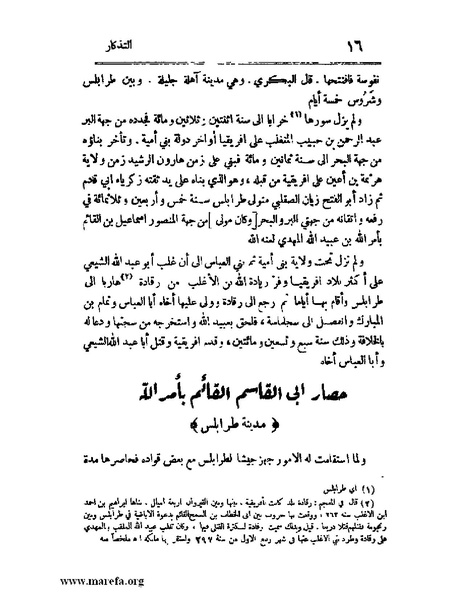 ١٦ التذكار
نفوسة فافتتحها . قال البكري . وهي مدينة آهلة جليلة . وبين طرابلس
وشَرُوس خمسة أيام
ولم يزل سورها (١) خرابا الى سنة اثنتين وثلاثين ومائة فجدده من جهة البر
عبد الرحمن بن حبيب المتغلب على افريقيا أواخر دولة بني أمية . وتأخر بناؤه
من جهة البحر الى سنة ثمانين ومائة فبني على زمن هارون الرشيد زمن ولاية
هرثمة بن أعين على افريقية من قبله ، وهو الذي بناه على يد ثقته زكرياء ابي قادم
ثم زاد أبو الفتح زيان الصقلبي متولى طرابلس سنة خمس وأربعين وثلاثمائة في
رفعه واتقانه من جهتي البر والبحر [وكان مولى] من جهة المنصور اسماعيل بن القائم
بأمر الله بن عبيد الله المهدي لعنه الله
ولم نزل تحت ولاية بنى أمية ثم بني العباس الى أن غلب أبو عبد الله الشيعي
على أكثر بلاد افريقيا وفر زيادة الله بن الأغلب من رقادة (٢) هاربا الى
طرابلس وأقام بها أياما ثم رجع الى رقادة وولى عليها أخاه أبا العباس وتمام بن
المبارك وانفصل الى سجلماسة ، فلحق بعبيد الله واستخرجه من سجنها ودعا له
بالخلافة وذلك سنة سبع وتسعين ومائتين ، وقدم افريقية وقتل أبا عبد الله الشيعي
وأبا العباس أخاه
حصار ابى القاسم القائم بأمر الله
﴿ مدينة طرابلس ﴾
ولما استقامت له الامور جهز جيشا لطرابلس مع بعض قواده فحاصرها مدة
(١) اي طرابلس
(٢) قال في المعجم : رقادة بلد كانت بأفريقية . بينها وبين القيروان اربعة اميال . بناها ابراهيم بن احمد
ابن الاغلب سنه ٢٦٣ ، ووقعت بها حروب بين ابى الخطاب بن السمح القائم بدعوة الاباضية في طرابلس وبين
على رقادة وطرد بني الاغلب عنها في شهر ربيع الاول من سنة ٢٩٧ واستقر بها ملكه اه ملخصا منه
www.marefa.org